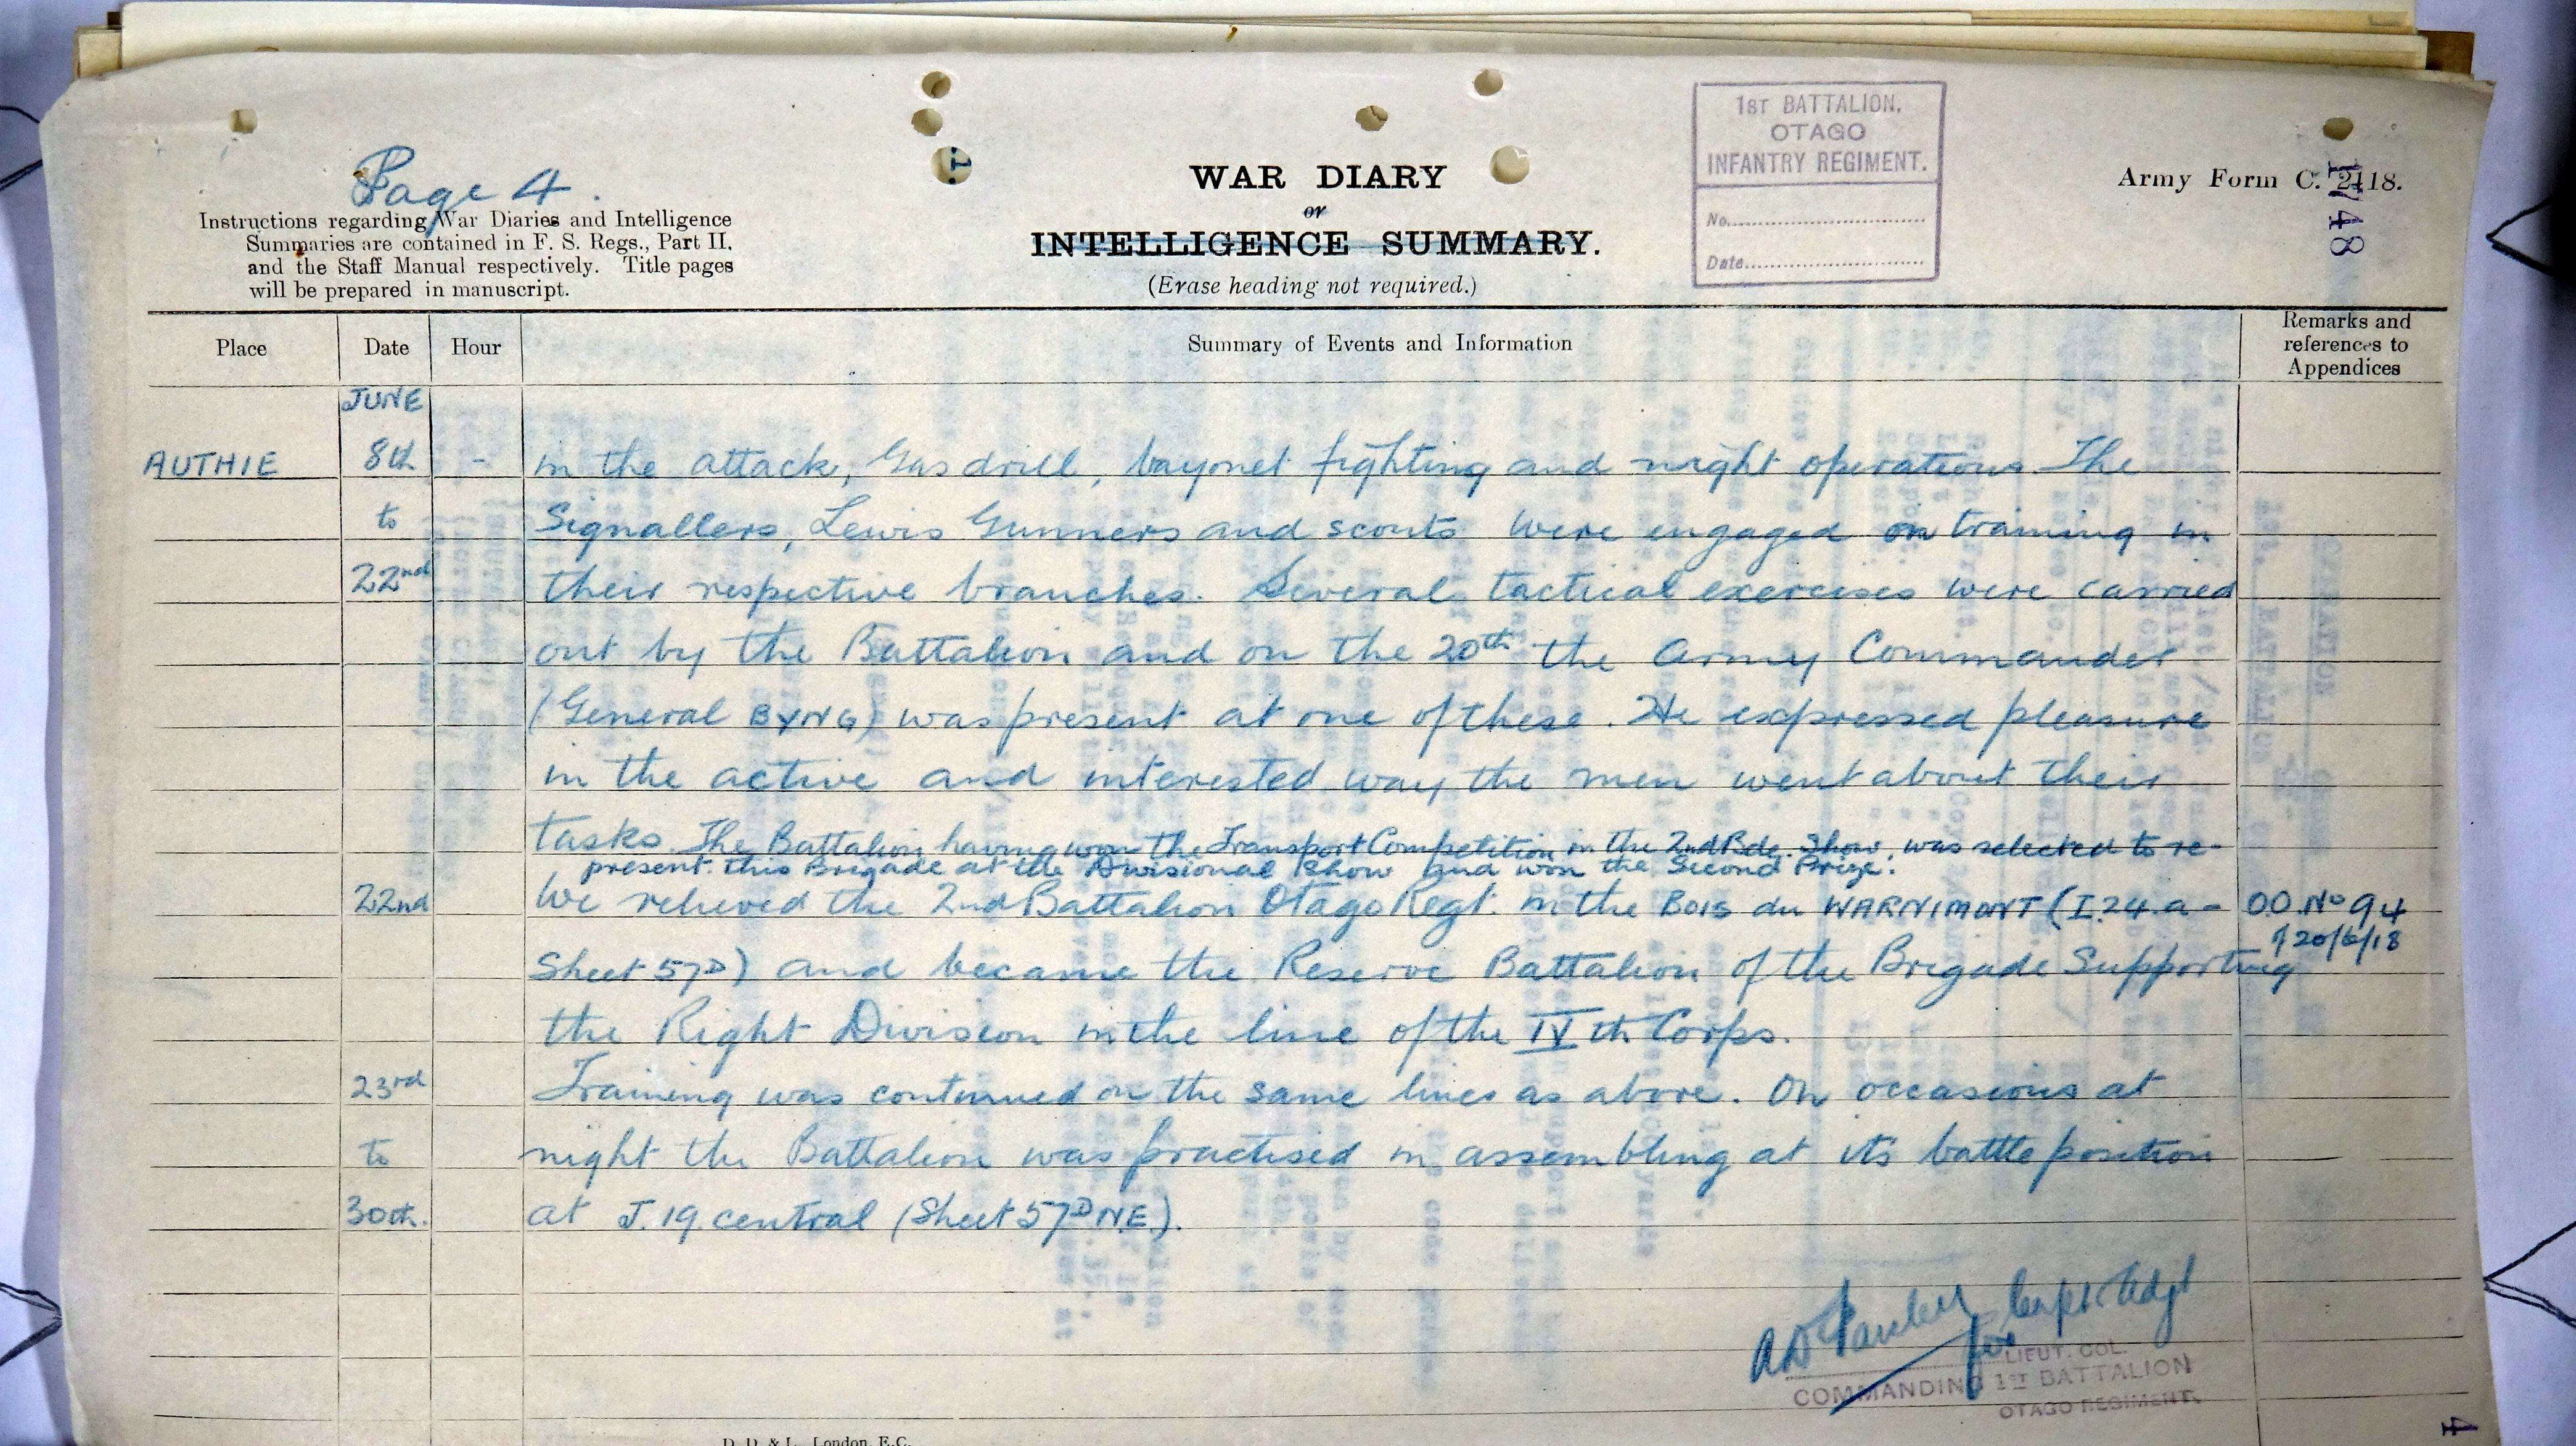 Page 4.
Instructions regarding War Diaries and Intelligence
Summaries are contained in F. S. Regs., Part II.
and the Staff Manual respectively. Title pages
will be prepared in manuscript.
WAR DIARY
or
INTELLIGENCE SUMMARY.
(Erase heading not required.)
1ST BATTALION,
OTAGO
INFANTRY REGIMENT.
No.
Date
Army Form C. 2118.
Place Date Hour Summary of Events and Information Remarks and
references to
Appendices
JUNE
AUTHIE 8th - in the attack, Gas drill, bayonet fighting and night operations. The
to Signallers, Lewis Gunners and scouts were engaged in training in
22nd their respective branches. Several tactical exercises were carried
out by the Battalion and on the 20th the Army Commander
(General BYNG) was present at one of these. He expressed pleasure
in the active and interested way the men went about their
tasks. The Battalion having won the Transport Competition in the 2nd Bde. Show, was selected to re-
present this Brigade at the Divisional Show and won the Second Prize.
22nd We relieved the 2nd Battalion Otago Regt. in the Bois du WARNIMONT (I.24.a - OO. No 94
Sheet 57D) and became the Reserve Battalion of the Brigade Supporting
/20/6/18
the Right Division in the line of the IVth Corps.
23rd Training was continued on the same lines as above. On occasions at
to night the Battalion was practised in assembling at its battle position
30th. at J.19 central (Sheet 57D N.E.).
Capt & Adjt
for
LIEUT. COL.
COMMANDING 1ST BATTALION
OTAGO REGIMENT.
D. D. & L., London, E.C.
4